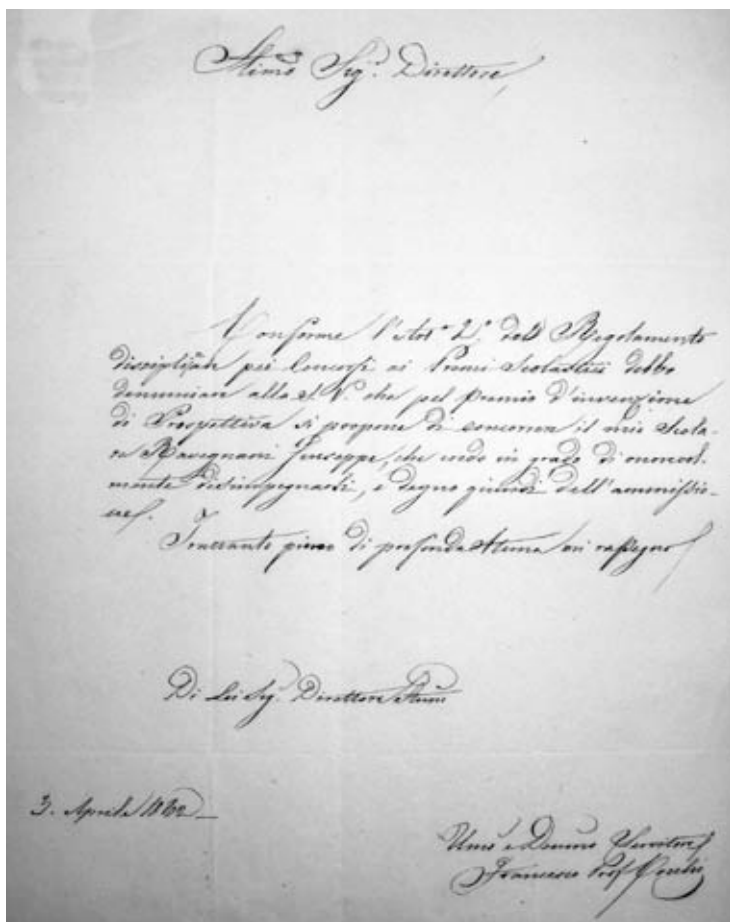 Stimo Sigr. Direttore,
Conforme l'Art.º 2.º del Regolamento
disciplinare pei Concorsi ai Premi Scolastici debbo
denunciare alla S. V. che pel premio d'invenzione
di Prospettiva si propone di concorrere il mio Scola-
re Ravegnani Giuseppe, che credo in grado di onorevol-
mente disimpegnarsi, e degno quindi dell'ammissio-
ne.
Frattanto pieno di profonda Stima mi rassegno
Di Lei Sigr. Direttore Stimo
3. Aprile 1862
Umo e Devmo Servitore
Francesco Prof.